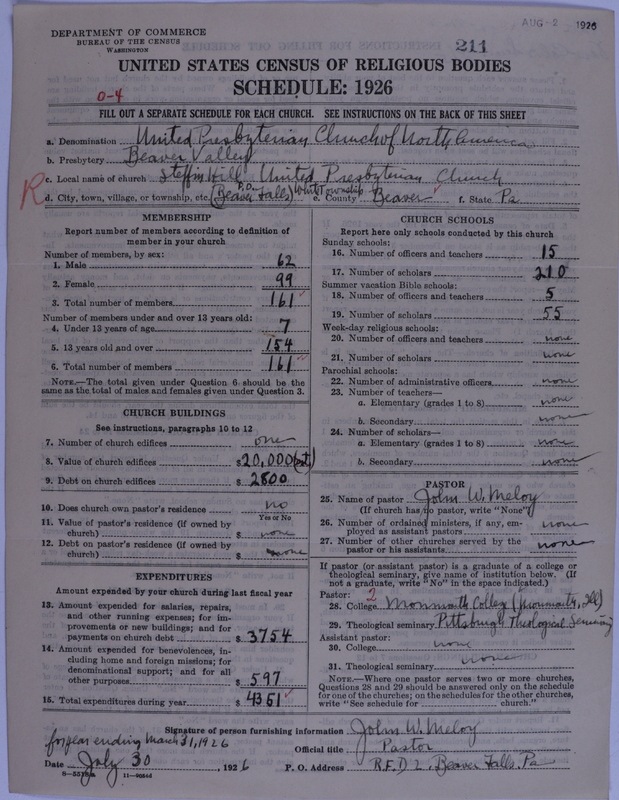 AUG-2 1926
DEPARTMENT OF COMMERCE
BUREAU OF THE CENSUS
WASHINGTON
211
UNITED STATES CENSUS OF RELIGIOUS BODIES
SCHEDULE: 1926
0-4
FILL OUT A SEPARATE SCHEDULE FOR EACH CHURCH. SEE INSTRUCTIONS ON THE BACK OF THIS SHEET
a. Denomination United Presbyterian Church of North America
b. Presbytery Beaver Valley
c. Local name of church Steffin Hill United Presbyterian Church
R d. City, town, village, or township, etc. (P.O. Beaver Falls) White Township e. County Beaver f. State Pa.
MEMBERSHIP
Report number of members according to definition of
member in your church
Number of members, by sex:
1. Male 62
2. Female 99
3. Total number of members 161
Number of members under and over 13 years old:
4. Under 13 years of age 7
5. 13 years old and over 154
6. Total number of members 161
NOTE.—The total given under Question 6 should be the
same as the total of males and females given under Question 3.
CHURCH BUILDINGS
See instructions, paragraphs 10 to 12
7. Number of church edifices one
8. Value of church edifices $20,000 (est)
9. Debt on church edifices $2800
10. Does church own pastor's residence no
Yes or No
11. Value of pastor's residence (if owned by
church) $ none
12. Debt on pastor's residence (if owned by
church) $ none
EXPENDITURES
Amount expended by your church during last fiscal year
13. Amount expended for salaries, repairs,
and other running expenses; for im-
provements or new buildings; and for
payments on church debt $3754
14. Amount expended for benevolences, in-
cluding home and foreign missions; for
denominational support; and for all
other purposes $597
15. Total expenditures during year $4351
CHURCH SCHOOLS
Report here only schools conducted by this church
Sunday schools:
16. Number of officers and teachers 15
17. Number of scholars 210
Summer vacation Bible schools:
18. Number of officers and teachers 5
19. Number of scholars 55
Week-day religious schools:
20. Number of officers and teachers none
21. Number of scholars none
Parochial schools:
22. Number of administrative officers none
23. Number of teachers—
a. Elementary (grades 1 to 8) none
b. Secondary none
24. Number of scholars—
a. Elementary (grades 1 to 8) none
b. Secondary none
PASTOR
25. Name of pastor John W. Meloy
(If church has no pastor, write "None")
26. Number of ordained ministers, if any, em-
ployed as assistant pastors none
27. Number of other churches served by the
pastor or his assistants none
If pastor (or assistant pastor) is a graduate of a college or
theological seminary, give name of institution below. (If
not a graduate, write "No" in the space indicated.)
Pastor: 2
28. College Monmouth College (Monmouth, Ill)
29. Theological seminary Pittsburgh Theological Seminary
Assistant pastor:
30. College none
31. Theological seminary none
NOTE.—Where one pastor serves two or more churches,
Questions 28 and 29 should be answered only on the schedule
for one of the churches; on the schedules for the other churches,
write "See schedule for church."
Signature of person furnishing information John W. Meloy
for year ending March 31, 1926
Official title Pastor
Date July 30, 1926 P. O. Address R.F.D 2, Beaver Falls, Pa